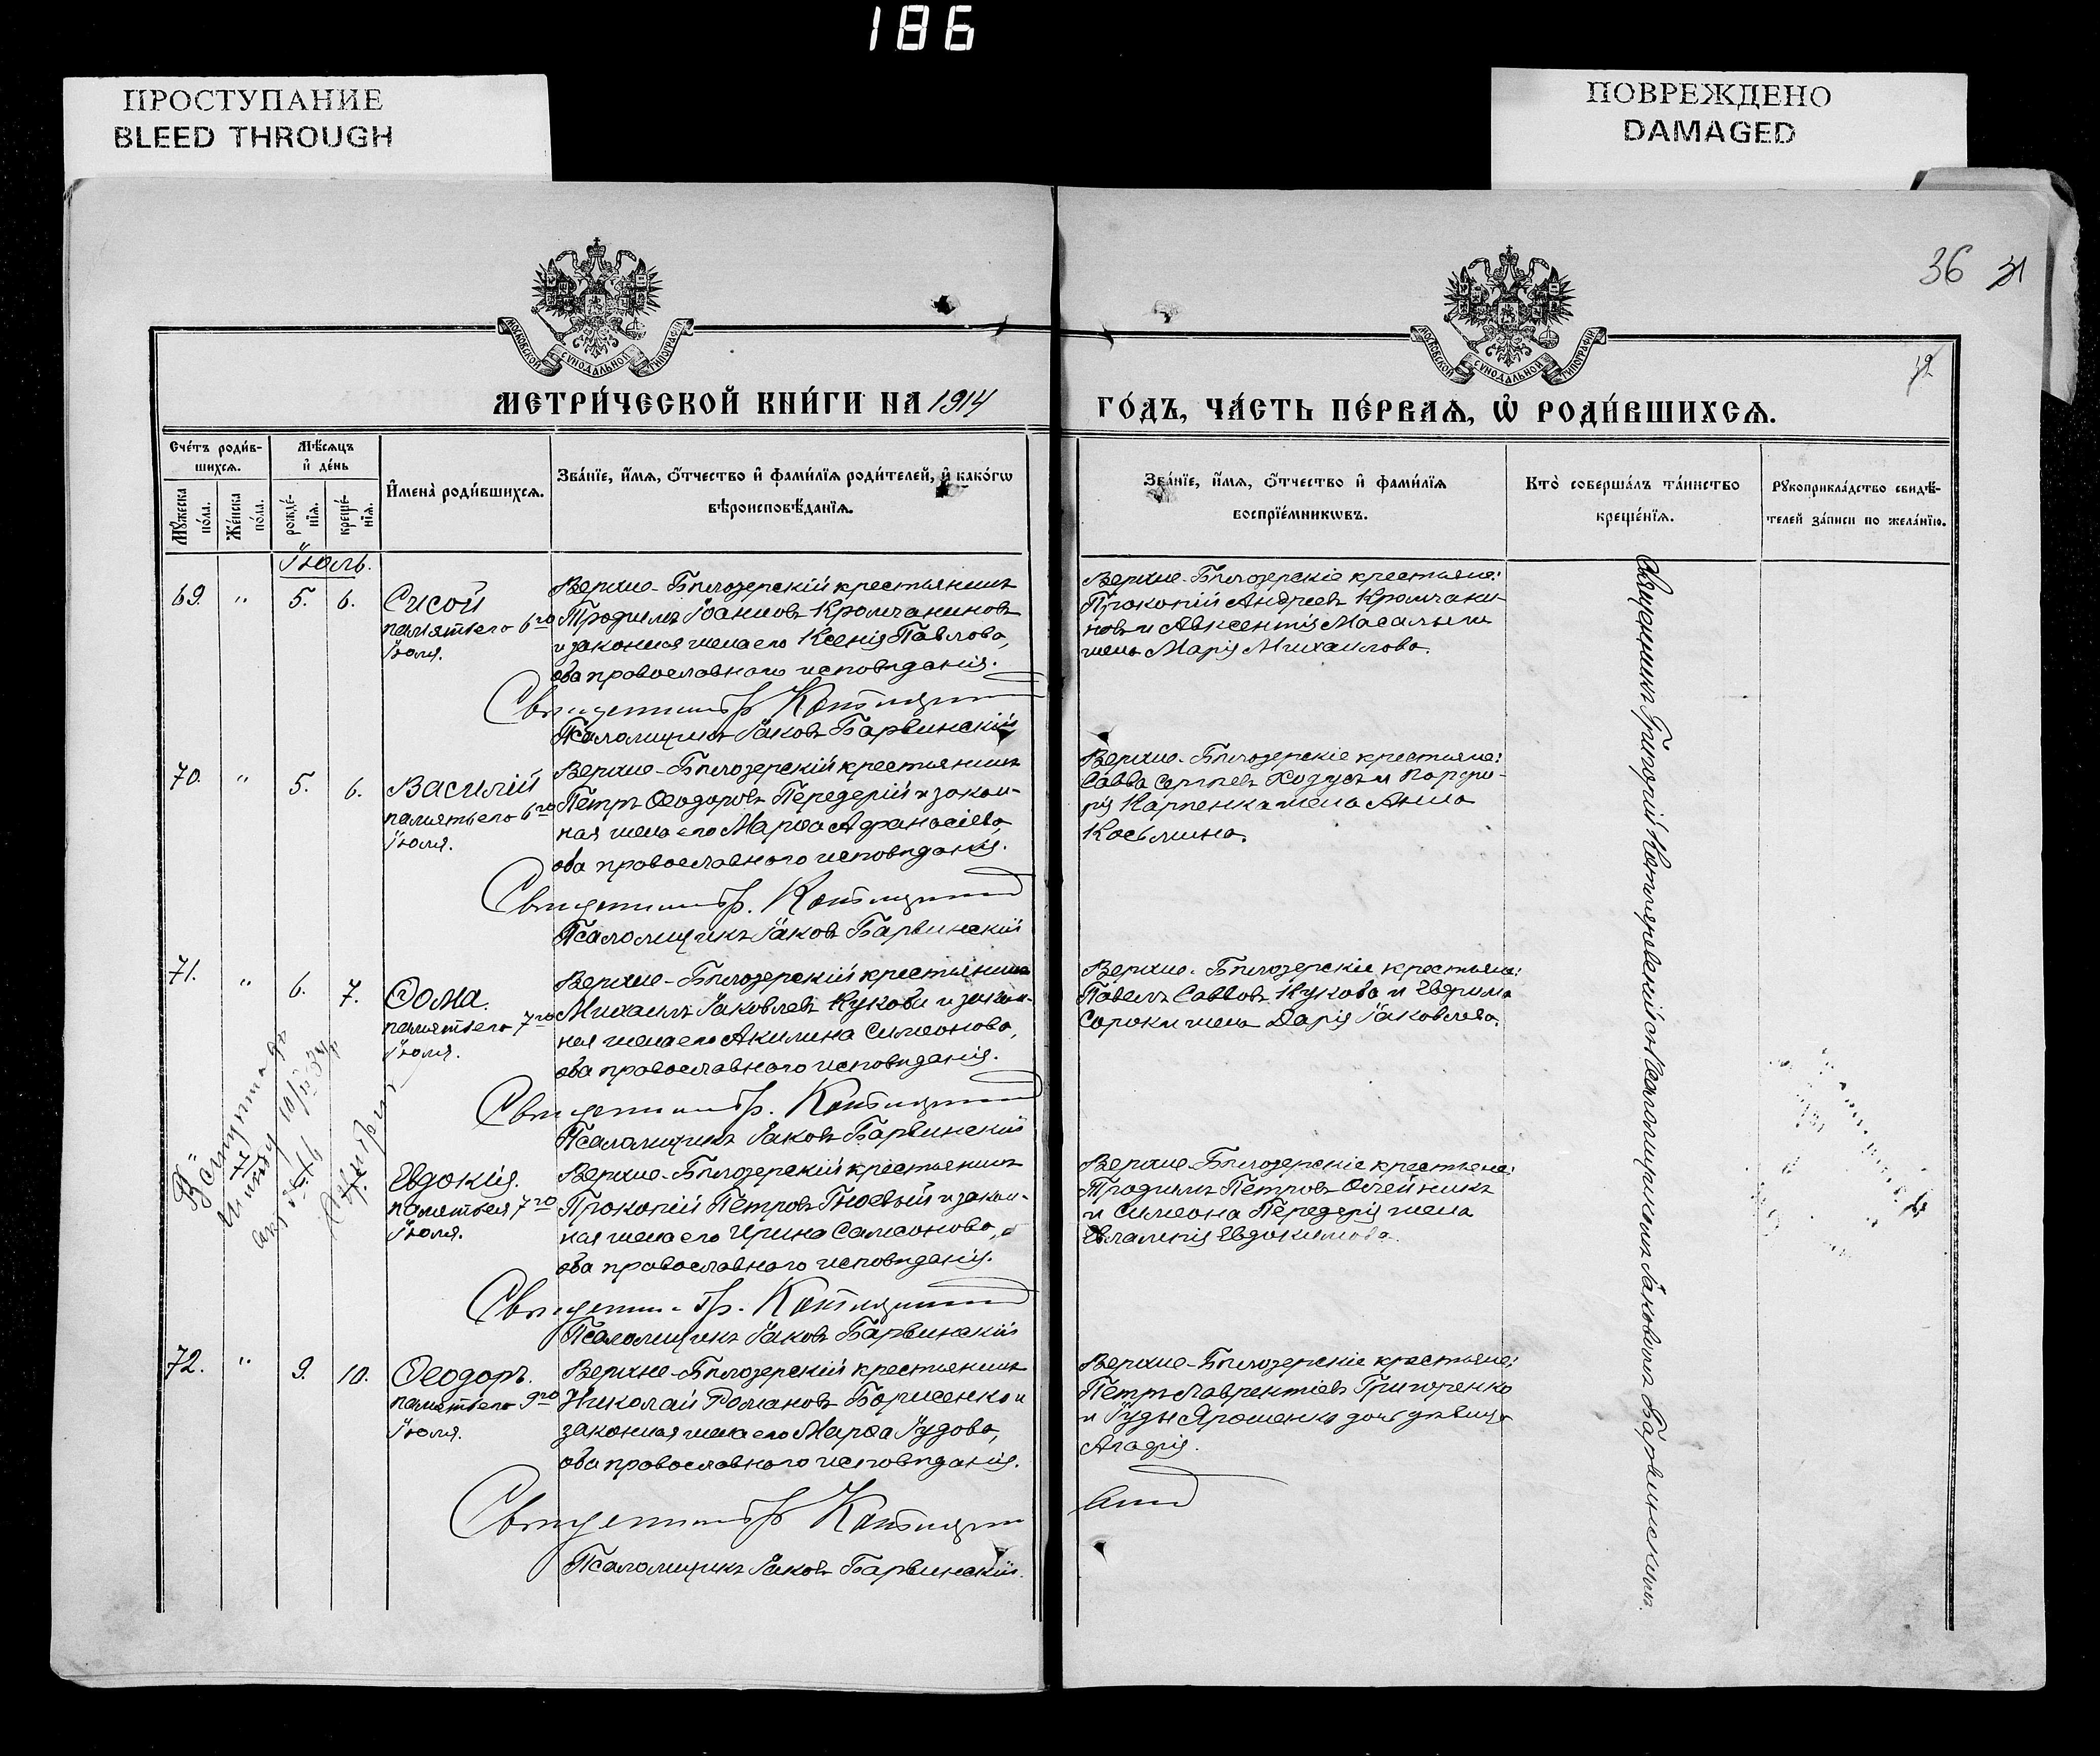 186
ПРОСТУПАНИЕ
BLEED THROUGH
ПОВРЕЖДЕНО
DAMAGED
36 31
МОСКОВСКОЙ СѴНОДАЛЬНОЙ ТИПОГРАФІИ
МОСКОВСКОЙ СѴНОДАЛЬНОЙ ТИПОГРАФІИ
МЕТРИ́ЧЕСКОЙ КНИ́ГИ НА 1914
ГО́ДЪ, ЧА́СТЬ ПЕ́РВАѦ, Ѡ҆ РОДИ́ВШИХСѦ.
Сче́тъ роди́в-
шихсѧ.
Мѣ́сѧцъ
и҆ де́нь
Мꙋ́жеска
по́ла.
Же́нска
по́ла.
рожде́-
нїѧ.
креще́-
нїѧ.
И҆мена̀ роди́вшихсѧ.
Зва́нїе, и҆́мѧ, ѻ҆́тчество и҆ фами́лїѧ роди́телей, и҆ како́гѡ
вѣроисповѣ́данїѧ.
Зва́нїе, и҆́мѧ, ѻ҆́тчество и҆ фами́лїѧ
воспрїе́мникѡвъ.
Кто̀ соверша́лъ та́инство
креще́нїѧ.
Рꙋкоприкла́дство свидѣ́-
телей за́писи по жела́нїю.
Іюль.
69. " 5. 6. Сисой
память его 6го
Іюля.
Верхне-Бѣлозерскій крестьянинъ
Трофимъ Іоанновъ Кромчаниновъ
и законная жена его Ксенія Павлова,
оба православнаго исповѣданія.
Священникъ Гр.
Псаломщикъ Іаковъ Барвинскій
Верхне-Бѣлозерскіе крестьяне:
Прокопій Андреевъ Кромчани-
новъ и Авксентія Масалыги
жена Марія Михаилова.
70. " 5. 6. Василій
память его 6го
Іюля.
Верхне-Бѣлозерскій крестьянинъ
Петръ Ѳеодоровъ Передерій и закон-
ная жена его Марѳа Афанасіева,
оба православнаго исповѣданія.
Священникъ Гр.
Псаломщикъ Іаковъ Барвинскій
Верхне-Бѣлозерскіе крестьяне:
Савва Сергѣевъ Ходусъ и Порфи-
рія Карпенка жена Анна
Косьмина.
71. " 6. 7. Ѳома.
память его 7го
Іюля.
Верхне-Бѣлозерскій крестьянинъ
Михаилъ Іаковлевъ Кукоба и закон-
ная жена его Акилина Симеонова,
оба православнаго исповѣданія.
Священникъ Гр.
Псаломщикъ Іаковъ Барвинскій
Верхне-Бѣлозерскіе крестьяне:
Павелъ Саввовъ Кукоба и Евфима
Сороки жена Дарія Іаковлева.
Евдокія.
память ея 7го
Іюля.
Верхне-Бѣлозерскій крестьянинъ
Прокопій Петровъ Гноевый и закон-
ная жена его Ирина Самсонова,
оба православнаго исповѣданія.
Священникъ Гр.
Псаломщикъ Іаковъ Барвинскій
Верхне-Бѣлозерскіе крестьяне:
Трофимъ Петровъ Олейникъ
и Симеона Передерія жена
Евлампія Евдокимова.
72. " 9. 10. Ѳеодоръ.
память его 9го
Іюля.
Верхне-Бѣлозерскій крестьянинъ
Николай Романовъ Борисенко и
законная жена его Марѳа Іудова,
оба православнаго исповѣданія.
Священникъ Гр.
Псаломщикъ Іаковъ Барвинскій.
Верхне-Бѣлозерскіе крестьяне:
Петръ Лаврентіевъ Григоренко
и Іуды Ярошенко дочь дѣвица
Агафія.
Священникъ Григорій съ псаломщикомъ Іаковомъ Барвинскимъ.